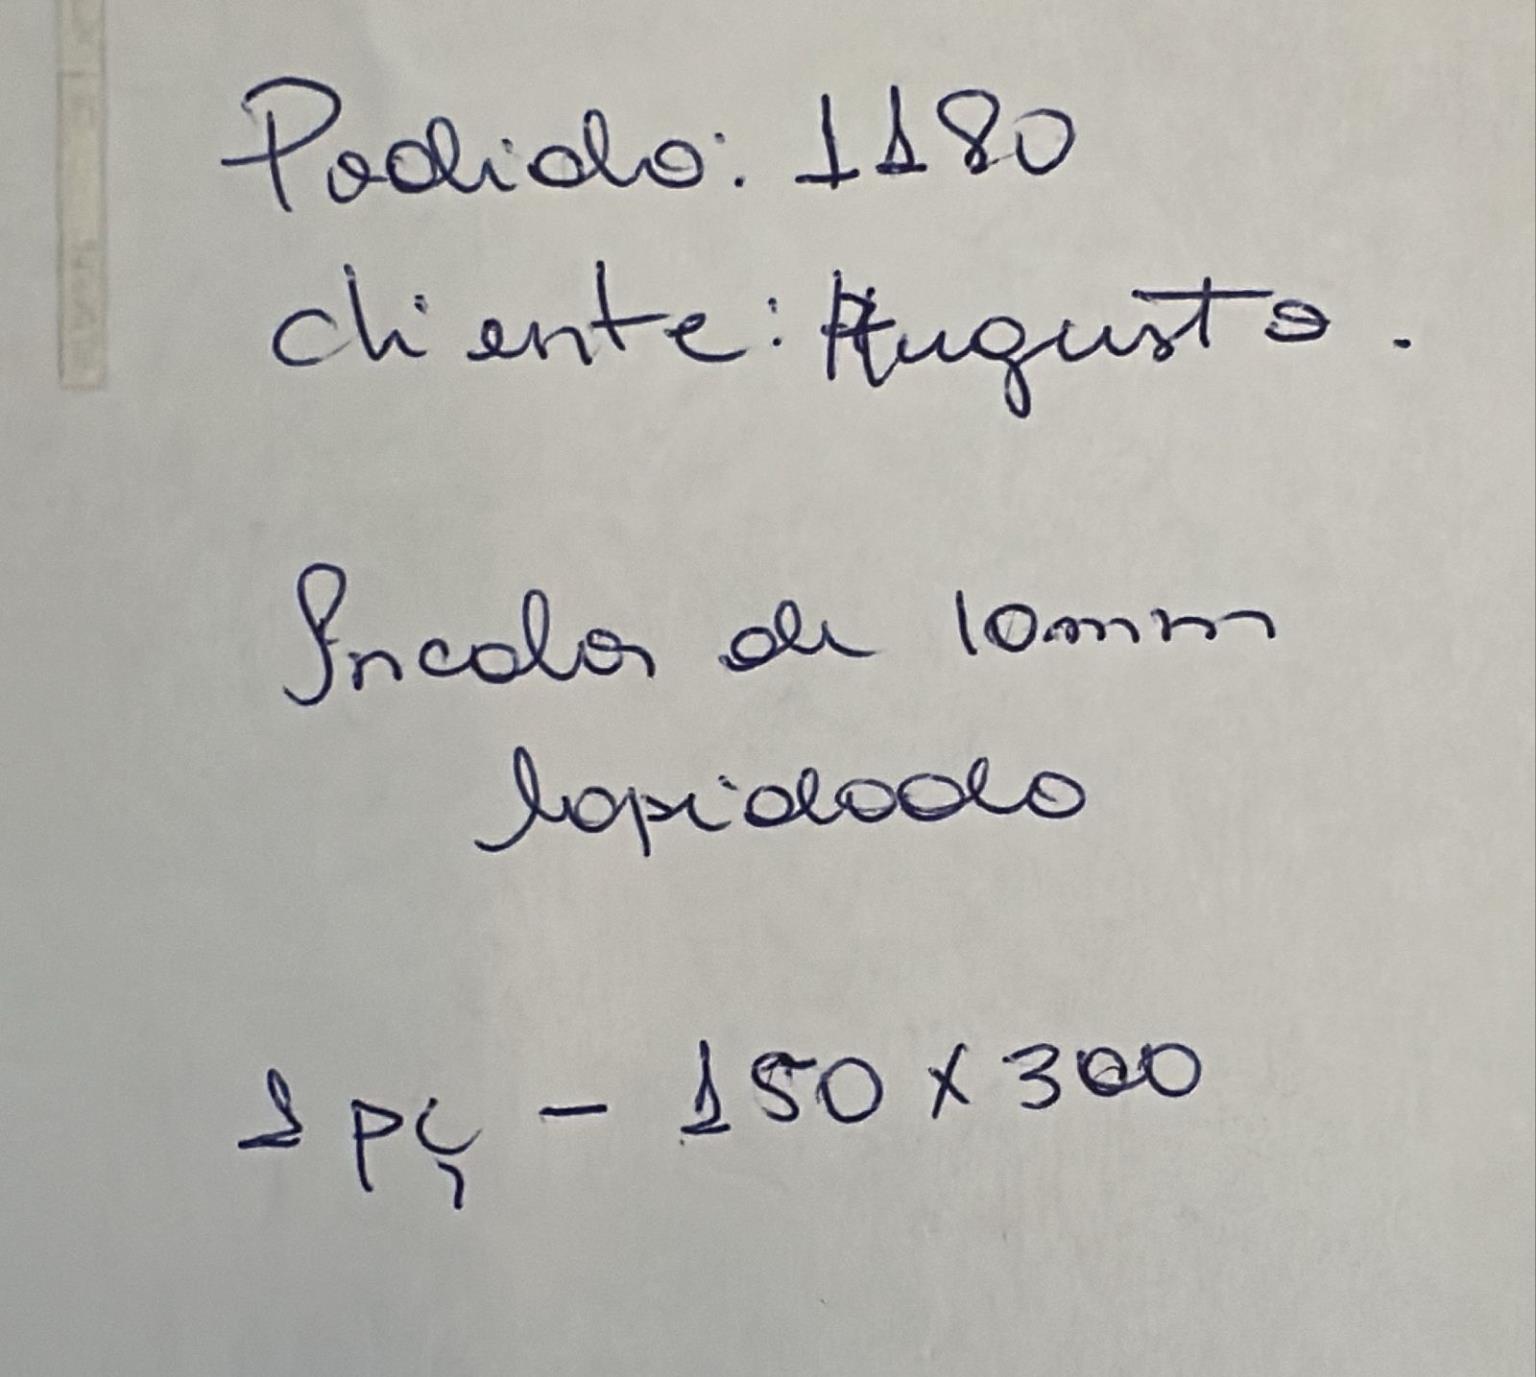 Pedido: 1180
cliente: Augusto.
Incolor de 10mm
lapidado
pç - 150 x 300